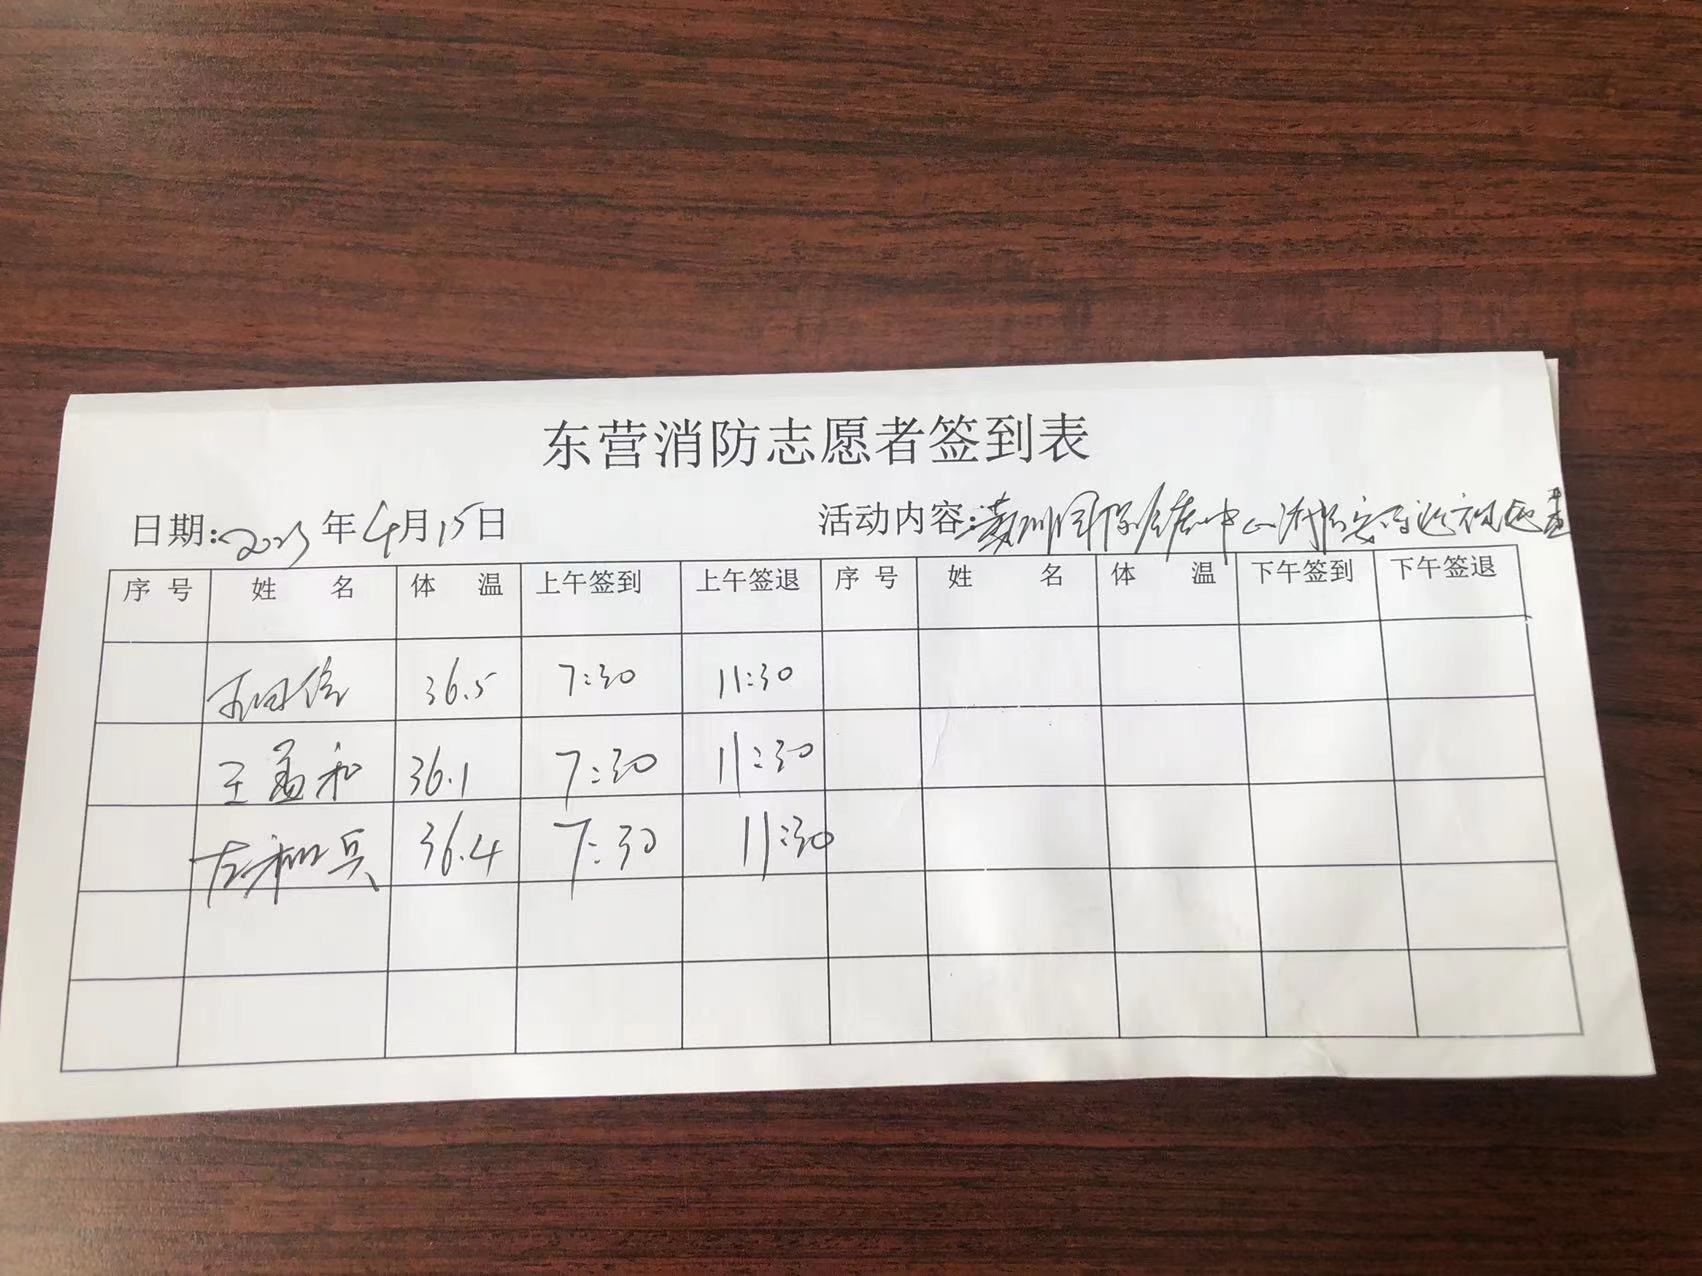 东营消防志愿者签到表
日期:2023年4月15日 活动内容:黄川国际 中心消防安全巡视
序号 姓名 体温 上午签到 上午签退 序号 姓名 体温 下午签到 下午签退
36.5 7:30 11:30
王孟和 36.1 7:30 11:30
左和兵 36.4 7:30 11:30